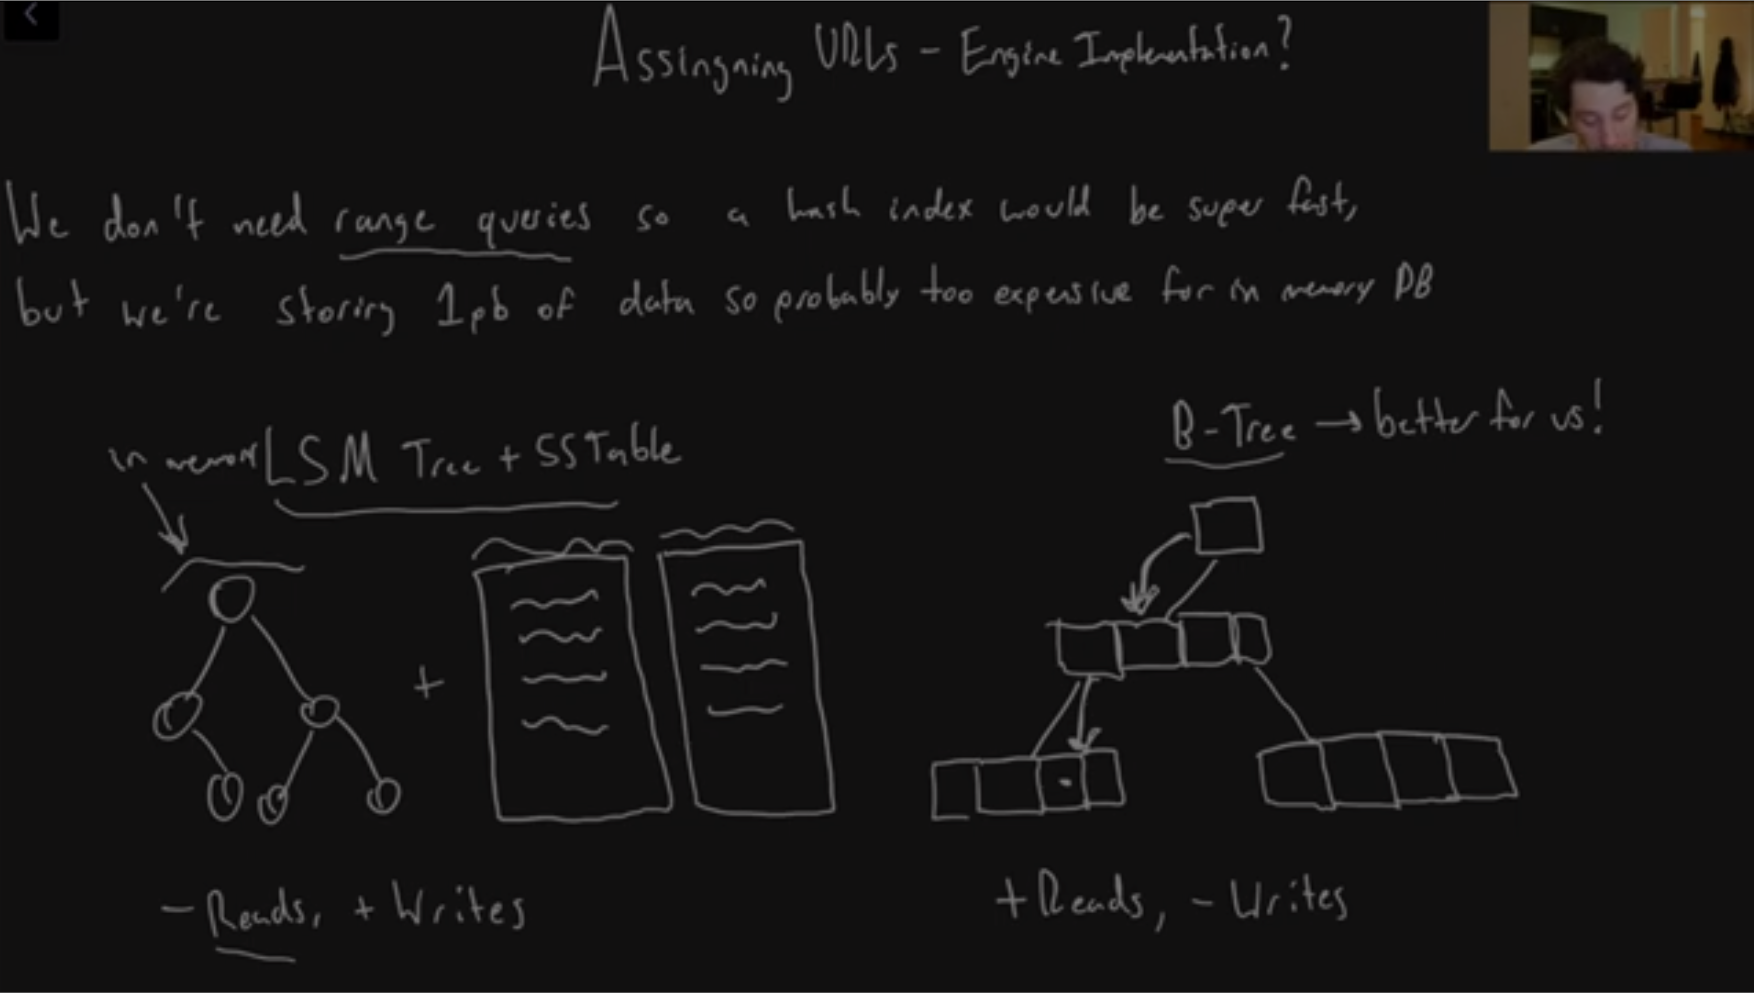 Assingning URLs - Engine Implementation?
We don't need range queries so a hash index would be super fast,
but we're storing 1pb of data so probably too expensive for in memory DB
in memory LSM Tree + SSTable
B-Tree → better for us!
+
- Reads, + Writes
+ Reads, - Writes